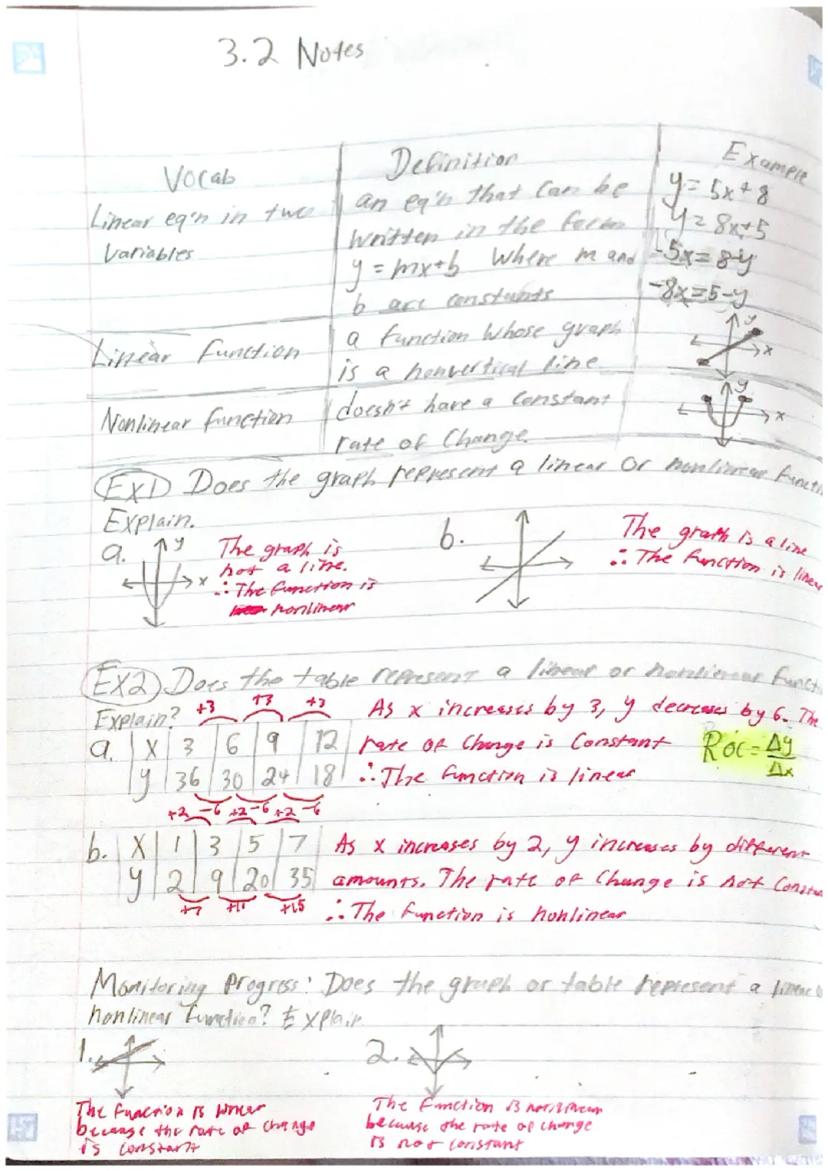 3.2 Notes
Vocab
Definition
Example
Linear eq'n in two
variables
an eq'n that can be
written in the form
y = mx+b where m and
b are constants
y = 5x+8
y = 8x+5
-5x = 8-y
-8x = 5-y
Linear Function
a function whose graph
is a nonvertical line
y
x
Nonlinear function
doesn't have a constant
rate of change.
y
x
Ex1) Does the graph represent a linear or nonlinear functi
Explain.
a.
y
x
The graph is
not a line.
∴ The function is
nonlinear
b.
The graph is a line
∴ The function is linear
Ex2) Does the table represent a linear or nonlinear funct
Explain?
+3 +3 +3
a. x 3 6 9 12
y 36 30 24 18
-6 -6 -6
As x increases by 3, y decreases by 6. The
rate of change is constant
∴ The function is linear
Roc = Δy/Δx
+2 +2 +2
b. x 1 3 5 7
y 2 9 20 35
+7 +11 +15
As x increases by 2, y increases by different
amounts. The rate of change is not constan
∴ The function is nonlinear
Monitoring Progress: Does the graph or table represent a linear o
nonlinear function? Explain
1.
2.
The function is linear
because the rate of change
is constant
The function is nonlinear
because the rate of change
is not constant